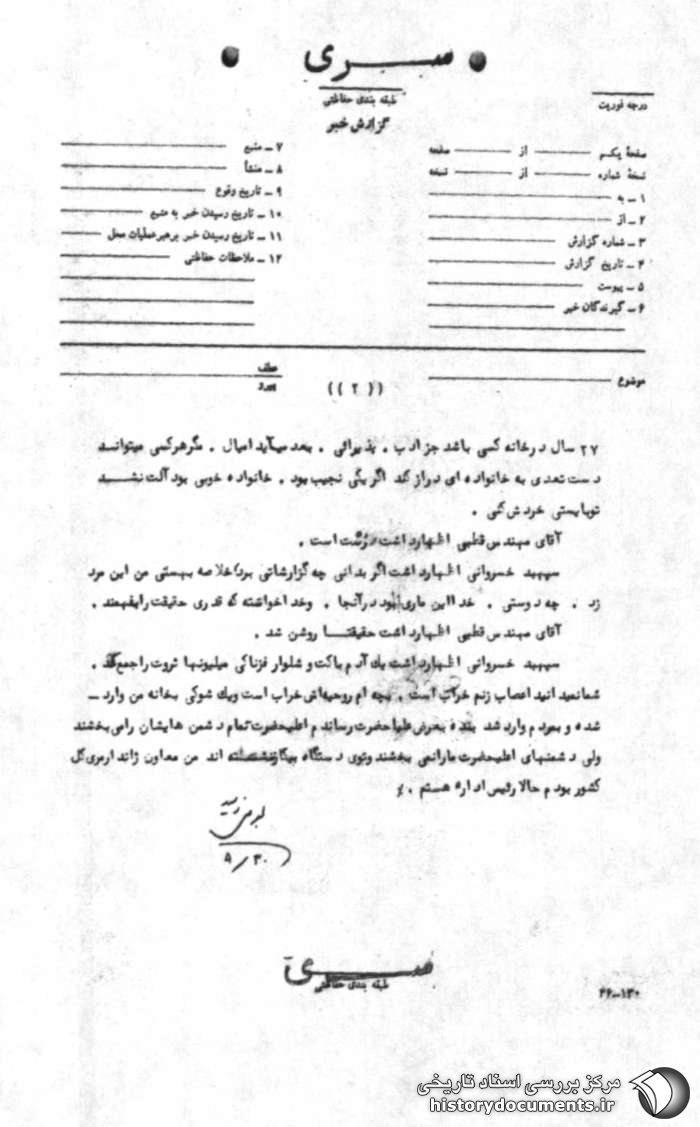 سری
طبقه بندی حفاظتی
گزارش خبر
درجه فوریت
صفحهٔ یکم از صفحه
نسخهٔ شماره از نسخه
۱ ـ به
۲ ـ از
۳ ـ شماره گزارش
۴ ـ تاریخ گزارش
۵ ـ پیوست
۶ ـ گیرندگان خبر
۷ ـ منبع
۸ ـ منشأ
۹ ـ تاریخ وقوع
۱۰ ـ تاریخ رسیدن خبر به منبع
۱۱ ـ تاریخ رسیدن خبر برهبر عملیات محل
۱۲ ـ ملاحظات حفاظتی
موضوع
((۲))
عطف
پیرو
۲۷ سال درخانه کسی باشد جز ادب . پذیرائی . بعد میآید امیال . مگر هرکسی میتواند
دست تعدی به خانواده ای دراز کند اگر یکی نجیب بود . خانواده خوبی بود آلت نشد
توبایستی خردش کنی .
آقای مهندس قطبی اظهارداشت درست است .
سپهبد خسروانی اظهارداشت اگر بدانی چه گزارشاتی برد خلاصه بهستی من این مرد
زد . چه دوستی . خدا این ماری بود درآنجا . وخداخواشته که قدری حقیقت رابفهمند .
آقای مهندس قطبی اظهارداشت حقیقتا روشن شد .
سپهبد خسروانی اظهارداشت یك آدم باکت و شلوار قزناکی میلیونها ثروت راجمع کند .
شمانمیدانید اعصاب زنم خراب است . بچه ام روحیه‌اش خراب است ویك شوکی بخانه من وارد ـ
شده و بمردم وارد شد بنده بعرض علیاحضرت رساندم اعلیحضرت تمام دشمن هایشان رامی بخشند
ولی دشمنهای اعلیحضرت مارانمی بخشند وتوی دستگاه بیکارننشسته اند من معاون ژاندارمری کل
کشور بودم حالا رئیس اداره هستم .
۹/۳۰
سری
طبقه بندی حفاظتی
۲۶-۱۳۰
مرکز بررسی اسناد تاریخی
historydocuments.ir